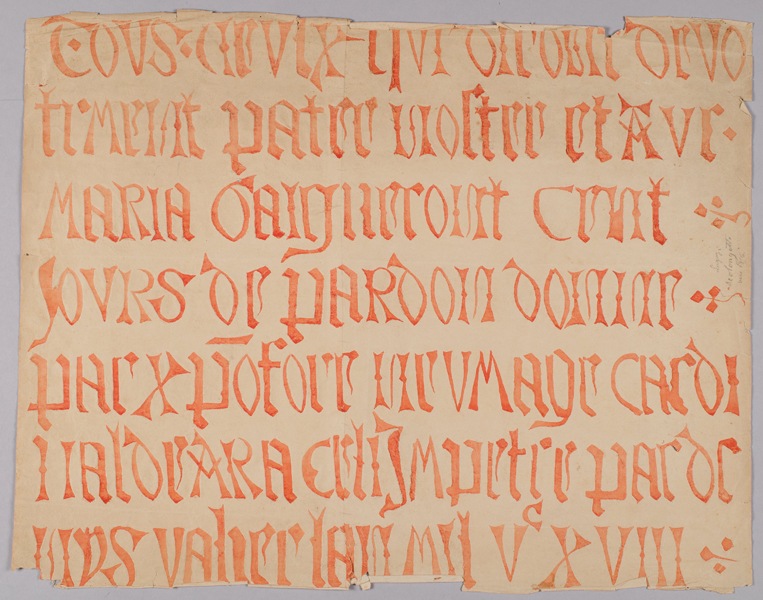 TOVS · CEVLX · QVI DIRONT DEVO
TEMENT PATER NOSTER ET AVE ·
MARIA GAIGNERONT CENT
JOVRS DE PARDON DONNNE
PAR X P̄OFORE NEVMAGE CARDI
NAL DE ARA CELI JMPETRE PAR DE
NYS VAHER LAN MIL Vᶜ XVIII